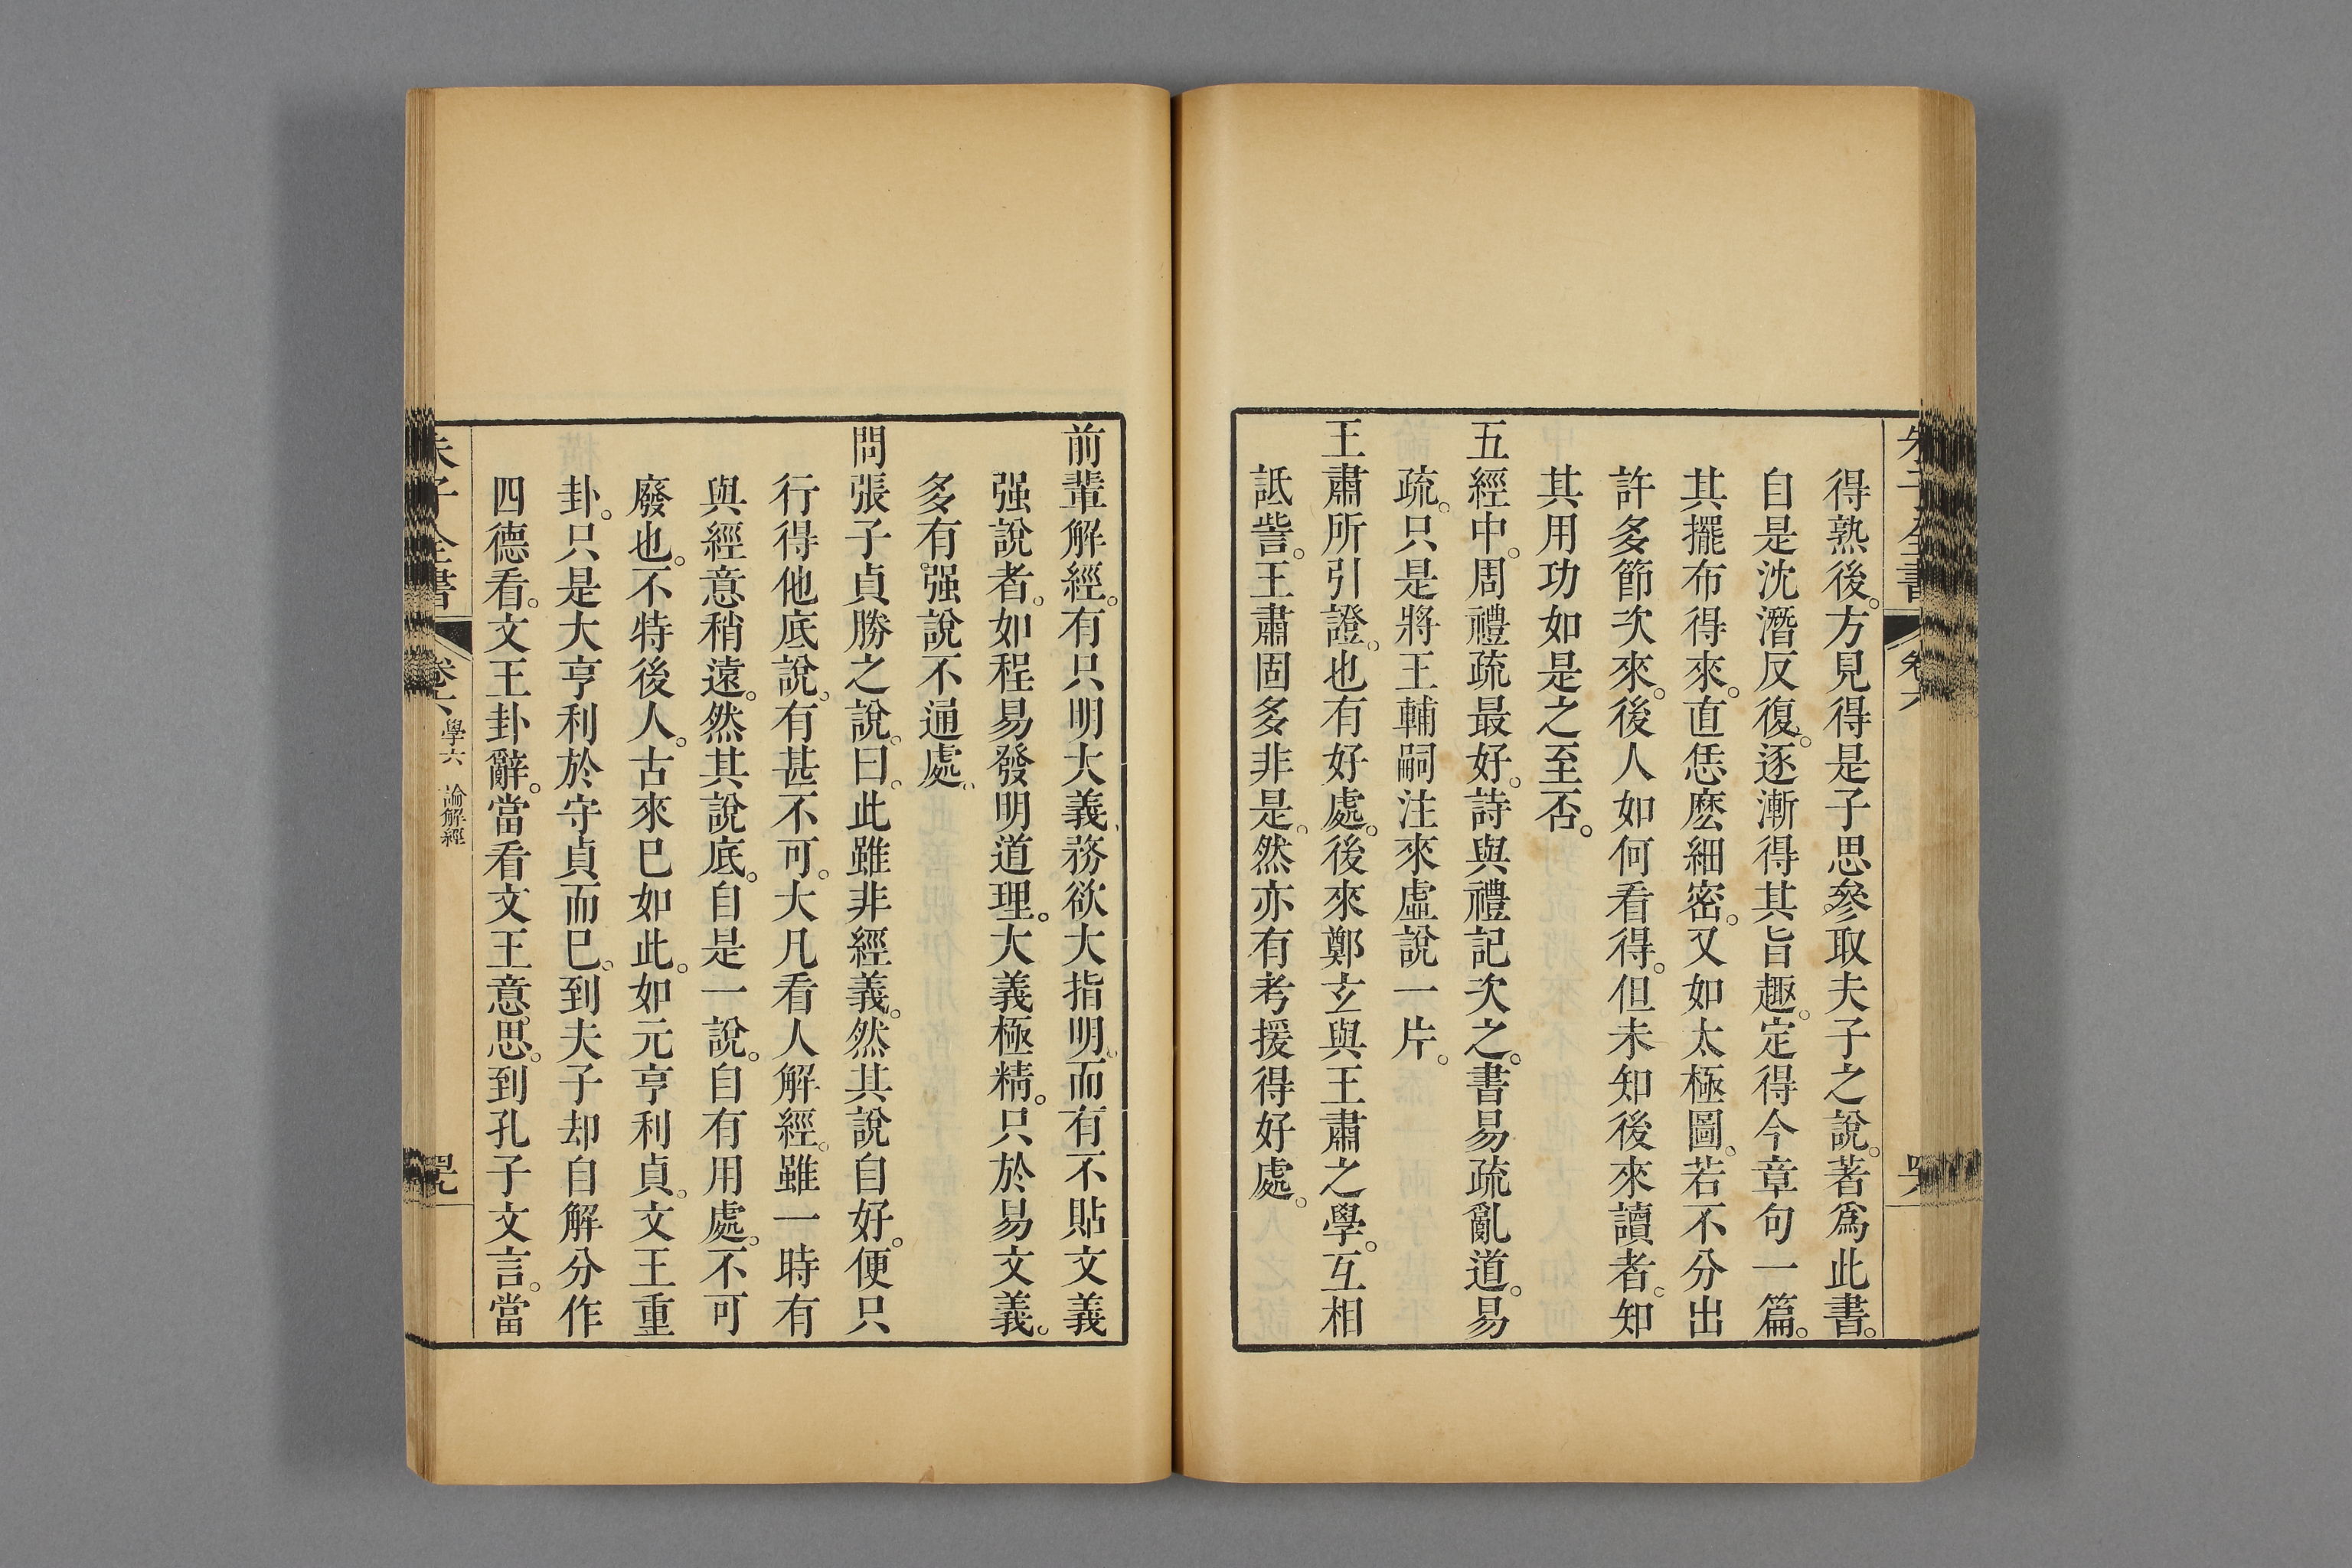 得熟後。方見得是子思參取夫子之說。著爲此書。
自是沈潛反復。逐漸得其旨趣。定得今章句一篇。
其擺布得來。直恁麽細密。又如太極圖。若不分出
許多節次來。後人如何看得。但未知後來讀者。知
其用功如是之至否。
五經中。周禮疏最好。詩與禮記次之。書易疏亂道。易
疏。只是將王輔嗣注來虛說一片。
王肅所引證。也有好處。後來鄭玄與王肅之學。互相
詆訾。王肅固多非是。然亦有考援得好處。
前輩解經。有只明大義。務欲大指明。而有不貼文義
强說者。如程易發明道理。大義極精。只於易文義。
多有强說不通處。
問張子貞勝之說。曰。此雖非經義。然其說自好。便只
行得他底說。有甚不可。大凡看人解經。雖一時有
與經意稍遠。然其說底。自是一說。自有用處。不可
廢也。不特後人。古來已如此。如元亨利貞。文王重
卦。只是大亨利於守貞而已。到夫子却自解分作
四德看。文王卦辭。當看文王意思。到孔子文言。當
朱子全書
卷六
學六 論解經